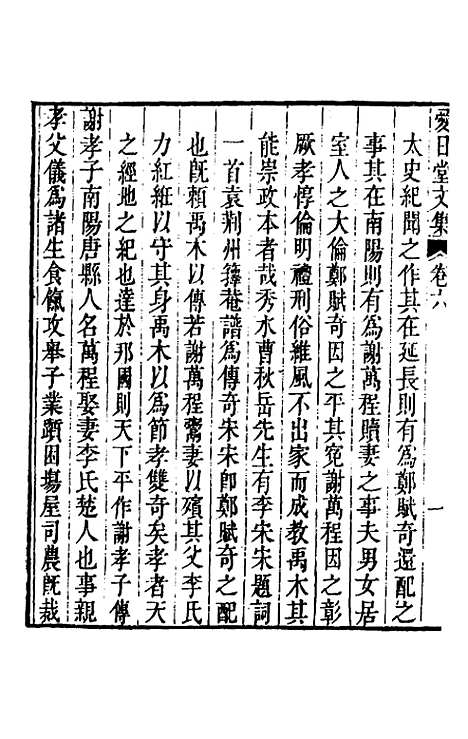 愛日堂文集 卷六 一
太史紀聞之作其在延長則有爲鄭賦奇還配之
事其在南陽則有爲謝萬程贖妻之事夫男女居
室人之大倫鄭賦奇因之平其寃謝萬程因之彰
厥孝惇倫明禮刑俗維風不出家而成教禹木其
能崇政本者哉秀水曹秋岳先生有李宋宋題詞
一首袁荆州籜菴譜爲傳奇宋宋卽鄭賦奇之配
也旣賴禹木以傳若謝萬程鬻妻以殯其父李氏
力紅紝以守其身禹木以爲節孝雙奇矣孝者天
之經地之紀也達於邦國則天下平作謝孝子傳
謝孝子南陽唐縣人名萬程娶妻李氏楚人也事親
孝父儀爲諸生食餼攻舉子業躓困塲屋司農旣裁